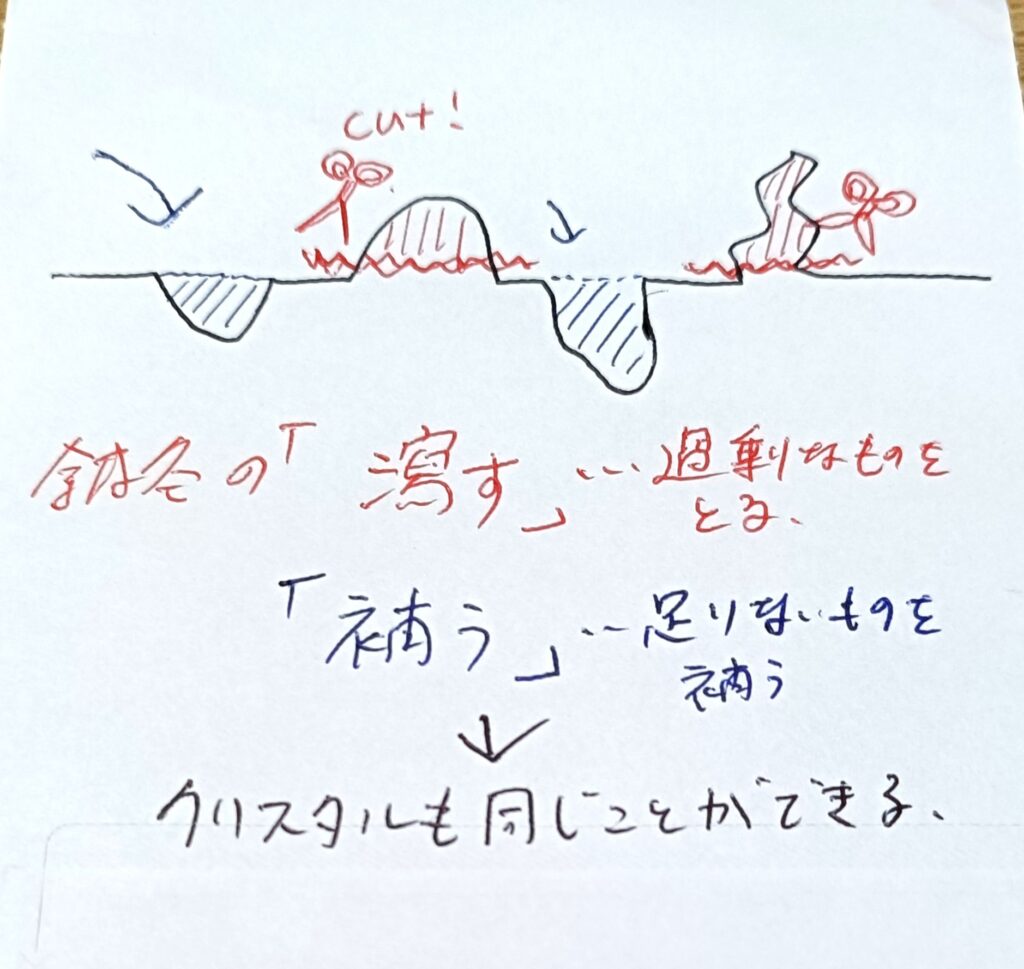 cut!
鍼灸の「瀉す」…過剰なものを
とる、
「補う」…足りないものを
補う
クリスタルも同じことができる、